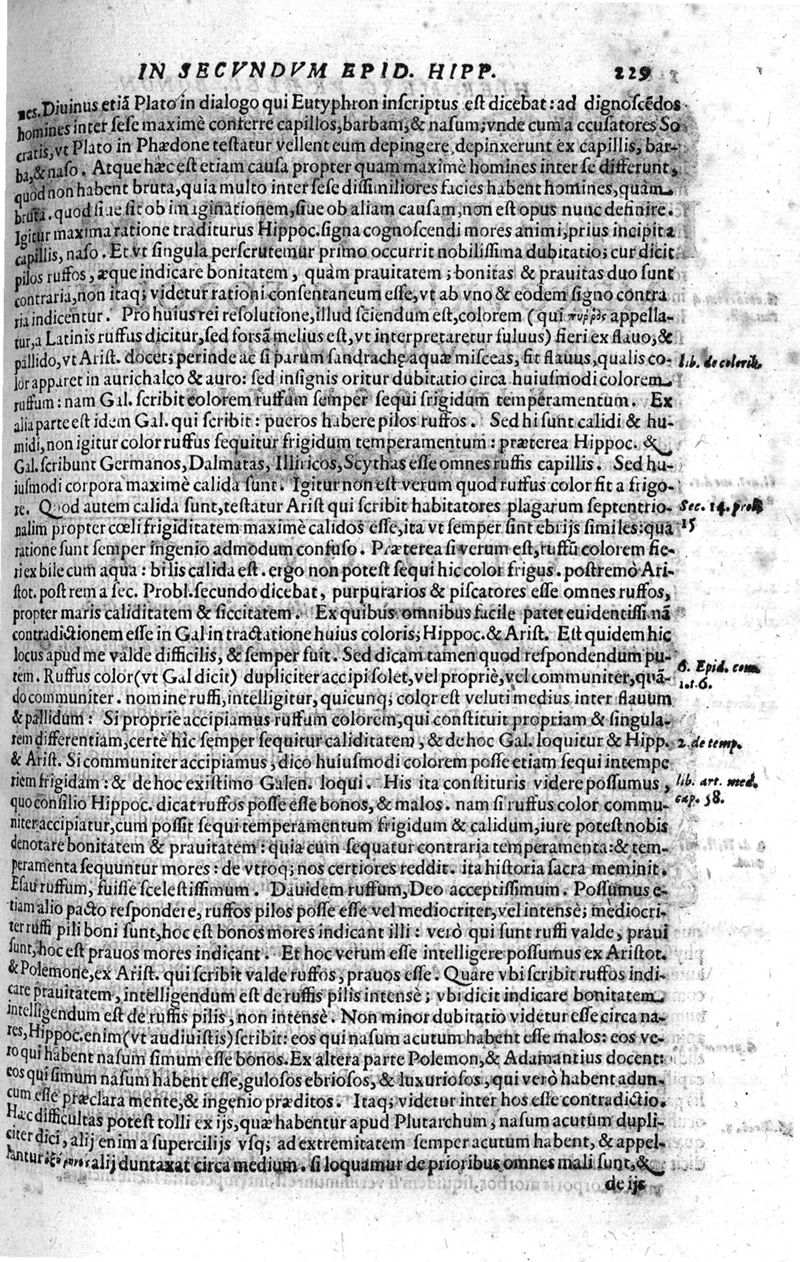 IN SECVNDVM EPID. HIPP. 229
nes. Diuinus etiã Plato in dialogo qui Eutyphron inscriptus est dicebat: ad dignoscẽdos
homines inter sese maximè conferre capillos, barbam, & nasum; vnde cum accusatores So
cratis, vt Plato in Phædone testatur vellent eum depingere, depinxerunt ex capillis, bar-
ba, & naso. Atque hæc est etiam causa propter quam maximè homines inter se differunt,
quòd non habent bruta, quia multo inter sese dissimiliores facies habent homines, quàm
bruta. quod siue sit ob imaginationem, siue ob aliam causam, non est opus nunc definire.
Igitur maxima ratione traditurus Hippoc. signa cognoscendi mores animi, prius incipit a
capillis, naso. Et vt singula perscrutemur primo occurrit nobilissima dubitatio; cur dicit
pilos ruffos, æque indicare bonitatem, quàm prauitatem; bonitas & prauitas duo sunt
contraria, non itaq; videtur rationi consentaneum esse, vt ab vno & eodem signo contra
ria indicentur. Pro huius rei resolutione, illud sciendum est, colorem (qui πυῤῥὸς appella-
tur, a Latinis ruffus dicitur, sed forsã melius est, vt interpretaretur fuluus) fieri ex flauo, &
pallido, vt Arist. docet; perinde ac si parum sandrachę aquæ misceas, fit flauus, qualis co- lib. de colorib.
lor apparet in aurichalco & auro: sed insignis oritur dubitatio circa huiusmodi colorem
ruffum: nam Gal. scribit colorem ruffum semper sequi frigidum temperamentum. Ex
alia parte est idem Gal. qui scribit: pueros habere pilos ruffos. Sed hi sunt calidi & hu-
midi, non igitur color ruffus sequitur frigidum temperamentum: præterea Hippoc. &
Gal. scribunt Germanos, Dalmatas, Illiricos, Scythas esse omnes ruffis capillis. Sed hu-
iusmodi corpora maximè calida sunt. Igitur non est verum quod ruffus color fit a frigo-
re. Quod autem calida sunt, testatur Arist qui scribit habitatores plagarum septentrio- Sec. 14. probl.
nalim propter cœli frigiditatem maximè calidos esse, ita vt semper sint ebrijs similes: qua 15
ratione sunt semper ingenio admodum confuso. Præterea si verum est, ruffũ colorem fie-
ri ex bile cum aqua: bilis calida est. ergo non potest sequi hic color frigus. postremò Ari-
stot. postrema sec. Probl. secundo dicebat, purpurarios & piscatores esse omnes ruffos,
propter maris caliditatem & siccitatem. Ex quibus omnibus facile patet euidentissimã
contradictionem esse in Gal in tractatione huius coloris; Hippoc. & Arist. Est quidem hic
locus apud me valde difficilis, & semper fuit. Sed dicam tamen quod respondendum pu- 6. Epid. com.
tem. Ruffus color (vt Gal dicit) dupliciter accipi solet, vel propriè, vel communiter, quã- 1.t.6.
do communiter. nomine ruffi, intelligitur, quicunq; color est veluti medius inter flauum
& pallidum: Si propriè accipiamus ruffum colorem, qui constituit propriam & singula-
rem differentiam, certè hic semper sequitur caliditatem, & de hoc Gal. loquitur & Hipp. 2. de temp.
& Arist. Si communiter accipiamus, dico huiusmodi colorem posse etiam sequi intempe
riem frigidam: & de hoc existimo Galen. loqui. His ita constituris videre possumus, lib. art. med.
quo consilio Hippoc. dicat ruffos posse esse bonos, & malos. nam si ruffus color commu- cap. 58.
niter accipiatur, cum possit sequi temperamentum frigidum & calidum, iure potest nobis
denotare bonitatem & prauitatem: quia cum sequatur contraria temperamenta: & tem-
peramenta sequuntur mores: de vtroq; nos certiores reddit. ita historia sacra meminit.
Esau ruffum, fuisse scelestissimum. Dauidem ruffum, Deo acceptissimum. Possumus e-
tiam alio pacto respondere, ruffos pilos posse esse vel mediocriter, vel intensè; mediocri-
ter ruffi pili boni sunt, hoc est bonos mores indicant illi: verò qui sunt ruffi valde, praui
sunt, hoc est prauos mores indicant. Et hoc verum esse intelligere possumus ex Aristot.
& Polemone, ex Arist. qui scribit valde ruffos, prauos esse. Quare vbi scribit ruffos indi-
care prauitatem, intelligendum est de ruffis pilis intensè; vbi dicit indicare bonitatem
intelligendum est de ruffis pilis, non intensè. Non minor dubitatio videtur esse circa na-
res, Hippoc. enim (vt audiuistis) scribit: eos qui nasum acutum habent esse malos: eos ve-
ro qui habent nasum simum esse bonos. Ex altera parte Polemon, & Adamantius docent:
eos qui simum nasum habent esse, gulosos ebriosos, & luxuriosos, qui verò habent adun-
cum esse præclara mente, & ingenio præditos. Itaq; videtur inter hos esse contradictio.
Hæc difficultas potest tolli ex ijs, quæ habentur apud Plutarchum, nasum acutum dupli-
citer dici, alij enim a supercilijs vsq; ad extremitatem semper acutum habent, & appel-
lantur alij duntaxat circa medium. si loquamur de prioribus omnes mali sunt, &
de ijs